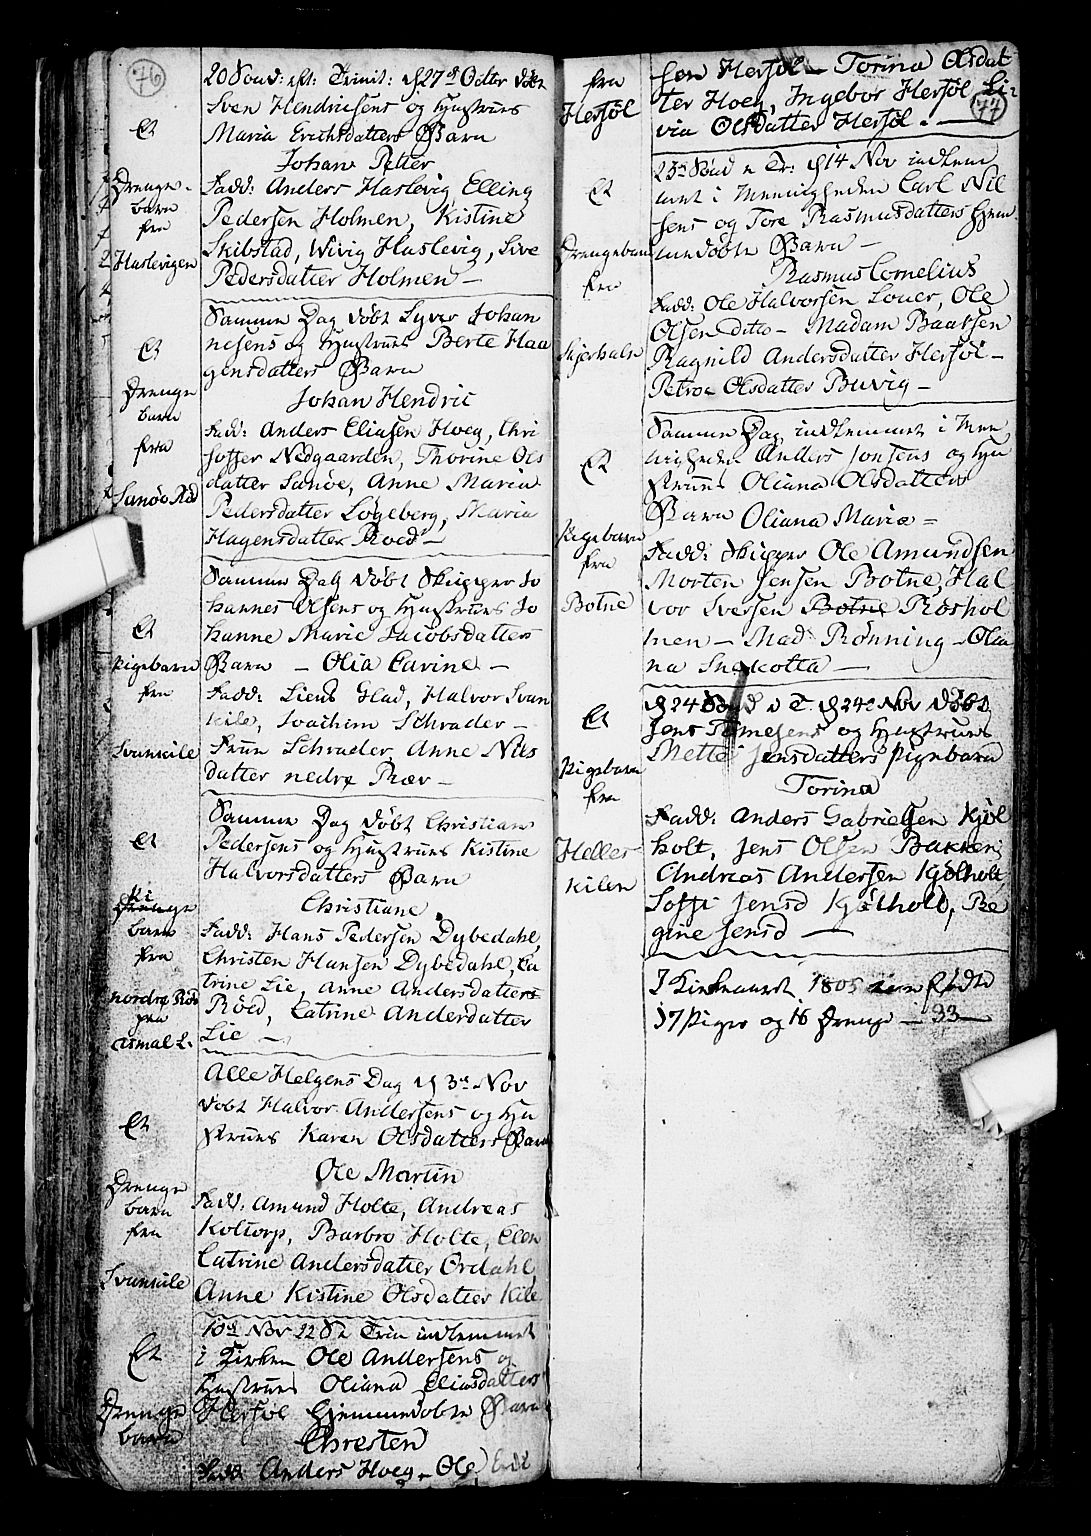 76
20 Sond: eft: Trinit: d 27de Octbr døbt
Sven Hendricsens og Hustrues
Maria Erichsdatters Barn
Johan Petter
Fadd: Anders Haslevig Elling
Pedersen Holmen, Kistine
Skibstad, Wivig Haslevig, Live
Pedersdatter Holmen —
Et
Drenge-
barn
fra
Haslevigen
Samme Dag døbt Syver Johan
nesens og Hustrues Berte Haa
gensdatters Barn
Johan Hendric
Fadd: Anders Eliasen Hoeg, Chri
stoffer Nedgaarden, Thorine Ols
datter Sanøe, Anne Maria
Pedersdatter Løgeberg, Maria
Hagensdatter Røed —
Et
Drenge
barn
fra
Sanøe Rød
Samme Dag døbt Skipper Jo
hannes Olsens og Hustrues Jo
hanne Marie Jacobsdatters
Barn — Olia Carine —
Fadd: Liens Glad, Halvor Svan
kile, Joachim Schrader —
Frue Schrader Anne Nils
datter nedre Røer —
Et
Pigebarn
fra
Svankile
Samme Dag døbt Christian
Pedersens og Hustrues Kistine
Halvorsdatters Barn
Christiane
Fadd: Hans Pedersen Dybedahl,
Christen Hansen Dybedahl, Ca
trine Lie, Anne Andersdatters
Røed, Catrine Andersdatter
Lie —
Et
Pi
Drenge
barn
fra
nordre Rød
Asmal L:
Alle Helgens Dag d 3de Nov
døbt Halvor Andersens og Hu
strues Karen Olsdatters Barn
Ole Martin
Fadd: Amund Holte, Andreas
Koltorp, Barbro Holte, Elen
Catrine Andersdatter Ordahl
Anne Kistine Olsdatter Kile
Et
Drenge
barn
fra
Svankile
10de Nov 22 S: Trin indlemmet
i Kirken Ole Andersens og
Hustrues Oliana Eliasdatters
Hersøl Hjemmedøbte Barn
Chresten
Fadd: Anders Hoeg — Ole
Et
Drenge
barn
fra
Hersøl
sen Hersøl — Torina Olsdat
ter Hoeg, Ingebor Hersøl Li:
via Olsdatter Hersøl. —
77
23de Sønd e Tr: d 14 Nov indlem
met i Menigheden Carl Nil
sens og Tore Rasmusdatters Hjem
medøbte Barn —
Rasmus Cornelius
Fadd: Ole Halvorsen Louer, Ole
Olsen ditto — Madam Baaksen
Ragnild Andersdatter Hersøl —
Petroe Olsdatter Buvig —
Et
Drengebarn
fra
Skjerhaln
Samme Dag indlemmet i Men
nigheden Anders Jensens og Hu
strues Oliana Olsdatters
Barn Oliana Maria —
Fadd: Skipper Ole Amundsen
Morten Jensen Botne, Hal
vor Iversen Botne Røshol
men — Mad: Rønning — Olia
na Snekotta —
Et
Pigebarn
fra
Botne
d 24 Sønd e T. d 24de Nov døbt
Jens Tømesens og Hustrues
Mette Jensdatters Pigebarn
Torina
Fadd: Anders Gabrielsen Kjøl
holt, Jens Olsen Bakken,
Andreas Andersen Kjølholt,
Soffi Jensd Kjølholt, Re
gine Jensd —
Et
Pigebarn
fra
Helles-
kilen
I Kirkeaaret 1805 ere fødte
17 Piger og 16 Drenge — 33 —